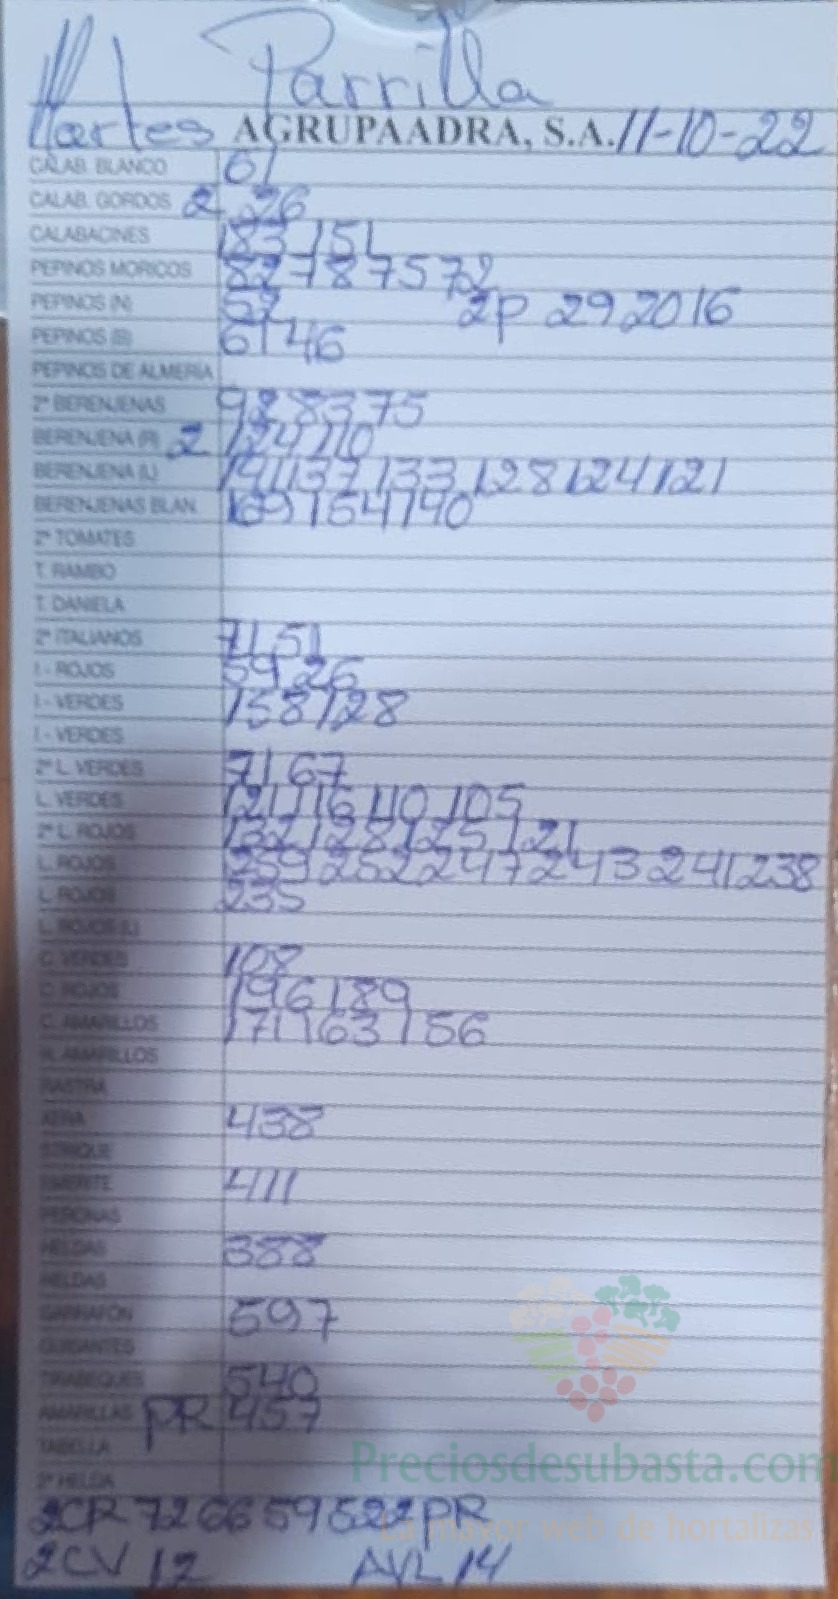 Parrilla
Martes AGRUPAADRA, S.A. 11-10-22
CALAB. BLANCO 61
CALAB. GORDOS 2 26
CALABACINES 183 151
PEPINOS MORICOS 82 78 75 72
PEPINOS (N) 52 2P 29 20 16
PEPINOS (B) 61 46
PEPINOS DE ALMERIA
2ª BERENJENAS 92 83 75
BERENJENA (R) 2 124 110
BERENJENA (L) 141 137 133 128 124 121
BERENJENAS BLAN. 169 154 140
2ª TOMATES
T. RAMBO
T. DANIELA
2ª ITALIANOS 71 51
I - ROJOS 59 26
I - VERDES 158 128
I - VERDES
2ª L. VERDES 71 67
L. VERDES 121 116 110 105
2ª L. ROJOS 132 128 125 121
L. ROJOS 259 252 247 243 241 238
L. ROJOS 235
L. ROJOS (L)
C. VERDES 108
C. ROJOS 196 189
C. AMARILLOS 171 163 156
R. AMARILLOS
RASTRA
XERA 438
STRIQUE
EMERITE 411
PERONAS
HELDAS 388
HELDAS
GARRAFON 597
GUISANTES
TIRABEQUES 540
AMARILLAS PR 457
TABELLA
2ª HELDA
Preciosdesubasta.com
2CR 72 66 59 52 2PR
La mayor web de hortalizas
2CV 12 AVL 14